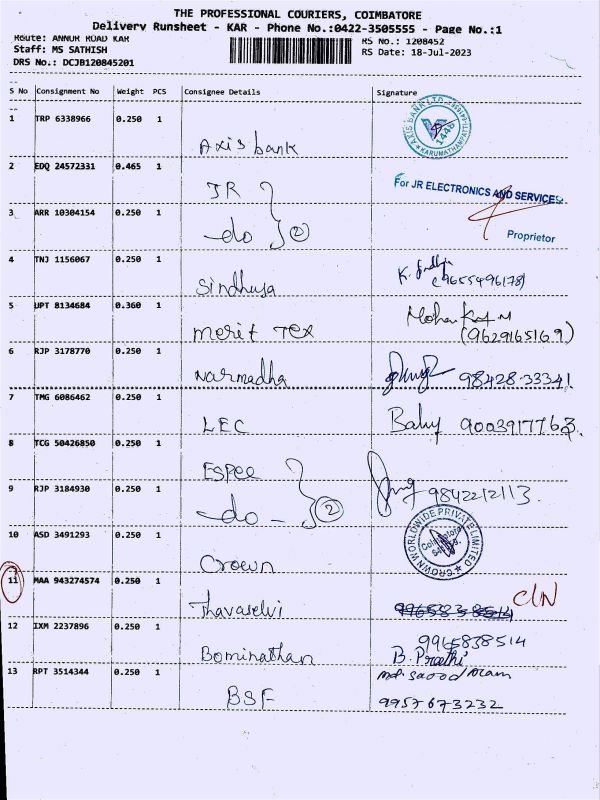 THE PROFESSIONAL COURIERS, COIMBATORE
Delivery Runsheet - KAR - Phone No.:0422-3505555 - Page No.:1
Route: ANNUR ROAD KAR
RS No.: 1208452
Staff: MS SATHISH
RS Date: 18-Jul-2023
DRS No.: DCJB120845201
S No Consignment No Weight PCS Consignee Details Signature
1 TRP 6338966 0.250 1 Axis bank AXIS BANK LTD. 1448
2 EDQ 24572331 0.465 1 JR For JR ELECTRONICS AND SERVICES
3 ARR 10304154 0.250 1 do 2 Proprietor
4 TNJ 1156067 0.250 1 Sindhuja K. (9655496178)
5 UPT 8134684 0.360 1 Merit Tex Mohan M (9629165169)
6 RJP 3178770 0.250 1 Narmadha 98428 33341
7 TMG 6086462 0.250 1 LEC Baby 9003917763.
8 TCG 50426850 0.250 1 ESPEE
9 RJP 3184930 0.250 1 do - 2 9842212113.
10 ASD 3491293 0.250 1 Crown CROWN WORLDWIDE PRIVATE LIMITED
11 MAA 943274574 0.250 1 Thavaselvi C/N
12 IXM 2237896 0.250 1 Bominathan 9965838514 B. Prathi
13 RPT 3514344 0.250 1 BSF Md. Saood Alam 9957673232